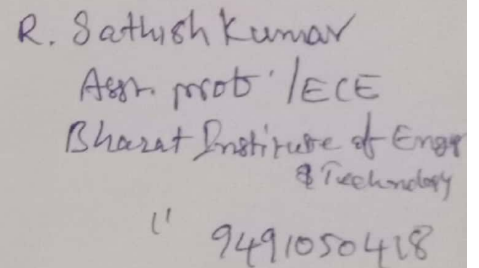 R. Sathish Kumar
Asst. prof. / ECE
Bharat Institute of Engg
& Technology
" 9491050418